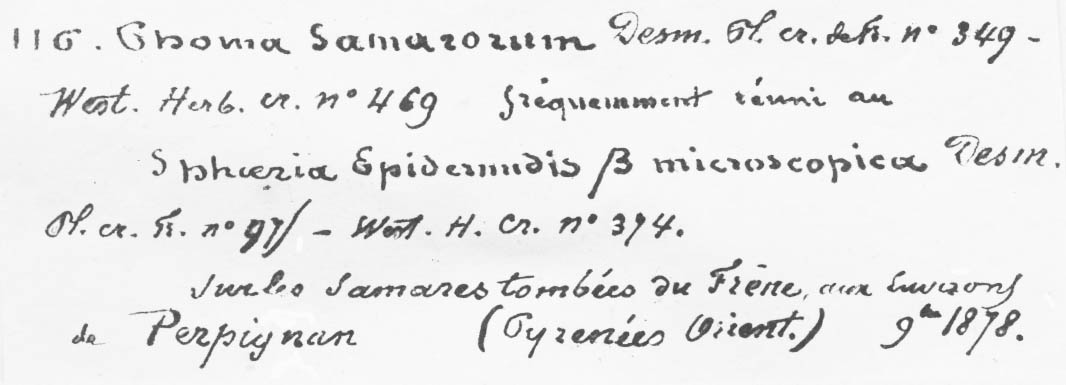 116. Phoma Samarorum Desm. Pl. cr. de fr. n° 349 -
West. Herb. cr. n° 469 fréquemment réuni au
Sphæria Epidermidis β microscopica Desm.
Pl. cr. fr. n° - West. H. Cr. n° 374.
sur les Samares tombées du Frêne, aux Environs
de Perpignan (Pyrenées Orient.) 9bre 1878.